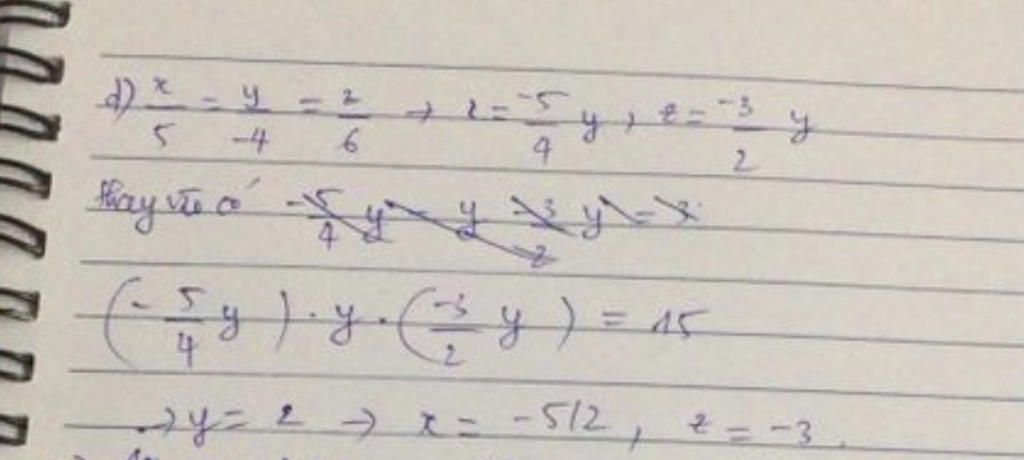 d) x/5 = y/-4 = z/6 → x = -5/4 y, z = -3/2 y
thay vào có
(-5/4 y) · y · (-3/2 y) = 15
→ y = 2 → x = -5/2, z = -3.